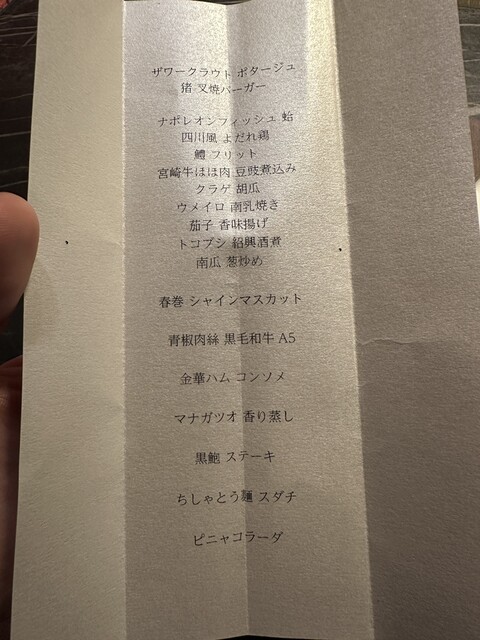 ザワークラウト ポタージュ
猪 叉焼バーガー
ナポレオンフィッシュ 蛤
四川風 よだれ鶏
鱧 フリット
宮崎牛ほほ肉 豆豉煮込み
クラゲ 胡瓜
ウメイロ 南乳焼き
茄子 香味揚げ
トコブシ 紹興酒煮
南瓜 葱炒め
春巻 シャインマスカット
青椒肉絲 黒毛和牛 A5
金華ハム コンソメ
マナガツオ 香り蒸し
黒鮑 ステーキ
ちしゃとう麺 スダチ
ピニャコラーダ